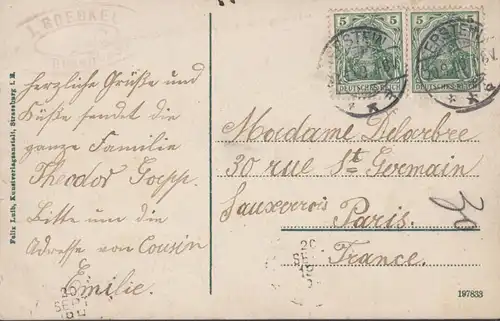 J. ROEBKEL
herzliche Grüße und
Küße sendet die
ganze Familie
Theodor Goepp.
Bitte um die
Adresse von Cousin
Emilie.
Felix Luib, Kunstverlagsanstalt, Strassburg i. E.
5 5
DEUTSCHES REICH
5 5
DEUTSCHES REICH
ERSTEIN
ERSTEIN
Madame Delarbre
30 rue St Germain
Lauxerrois Paris.
France.
30
20
SEPT
20
SEPT
197833